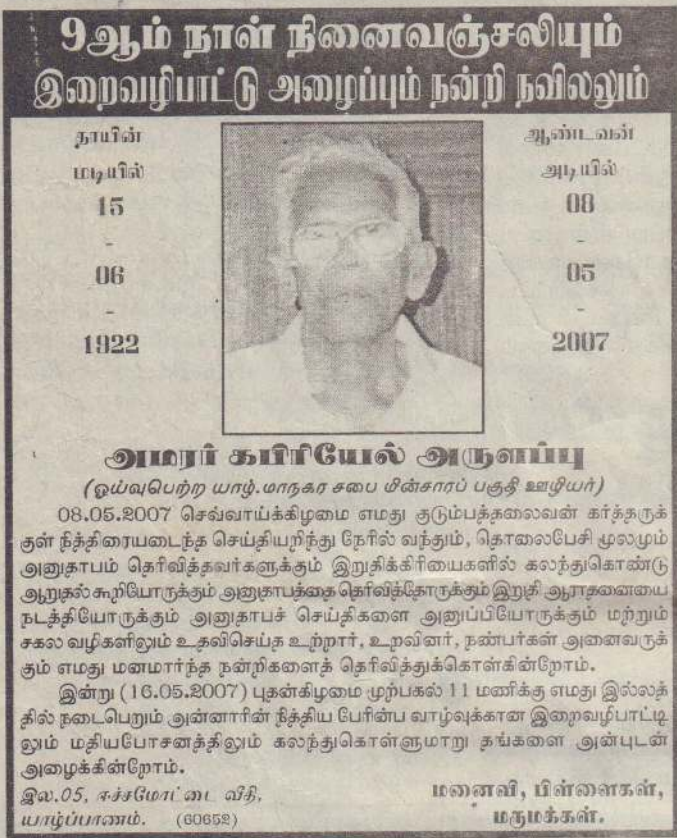 9ஆம் நாள் நினைவஞ்சலியும்
இறைவழிபாட்டு அழைப்பும் நன்றி நவிலலும்
தாயின்
மடியில்
15
-
06
-
1922
ஆண்டவன்
அடியில்
08
-
05
-
2007
அமரர் கபிரியேல் அருளப்பு
(ஓய்வுபெற்ற யாழ்.மாநகர சபை மின்சாரப் பகுதி ஊழியர்)
08.05.2007 செவ்வாய்க்கிழமை எமது குடும்பத்தலைவன் கர்த்தருக்
குள் நித்திரையடைந்த செய்தியறிந்து நேரில் வந்தும், தொலைபேசி மூலமும்
அனுதாபம் தெரிவித்தவர்களுக்கும் இறுதிக்கிரியைகளில் கலந்துகொண்டு
ஆறுதல் கூறியோருக்கும் அனுதாபத்தை தெரிவித்தோருக்கும் இறுதி ஆராதனையை
நடத்தியோருக்கும் அனுதாபச் செய்திகளை அனுப்பியோருக்கும் மற்றும்
சகல வழிகளிலும் உதவிசெய்த உற்றார், உறவினர், நண்பர்கள் அனைவருக்
கும் எமது மனமார்ந்த நன்றிகளைத் தெரிவித்துக்கொள்கின்றோம்.
இன்று (16.05.2007) புதன்கிழமை முற்பகல் 11 மணிக்கு எமது இல்லத்
தில் நடைபெறும் அன்னாரின் நித்திய பேரின்ப வாழ்வுக்கான இறைவழிபாட்டி
லும் மதியபோசனத்திலும் கலந்துகொள்ளுமாறு தங்களை அன்புடன்
அழைக்கின்றோம்.
இல.05, ஈச்சமோட்டை வீதி,
யாழ்ப்பாணம். (60652)
மனைவி, பிள்ளைகள்,
மருமக்கள்.